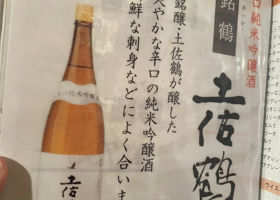 口純米吟醸酒
銘鶴
土佐鶴
銘醸・土佐鶴が醸した
爽やかな辛口の純米吟醸酒
鮮な刺身などによく合いま
純米吟醸
土佐